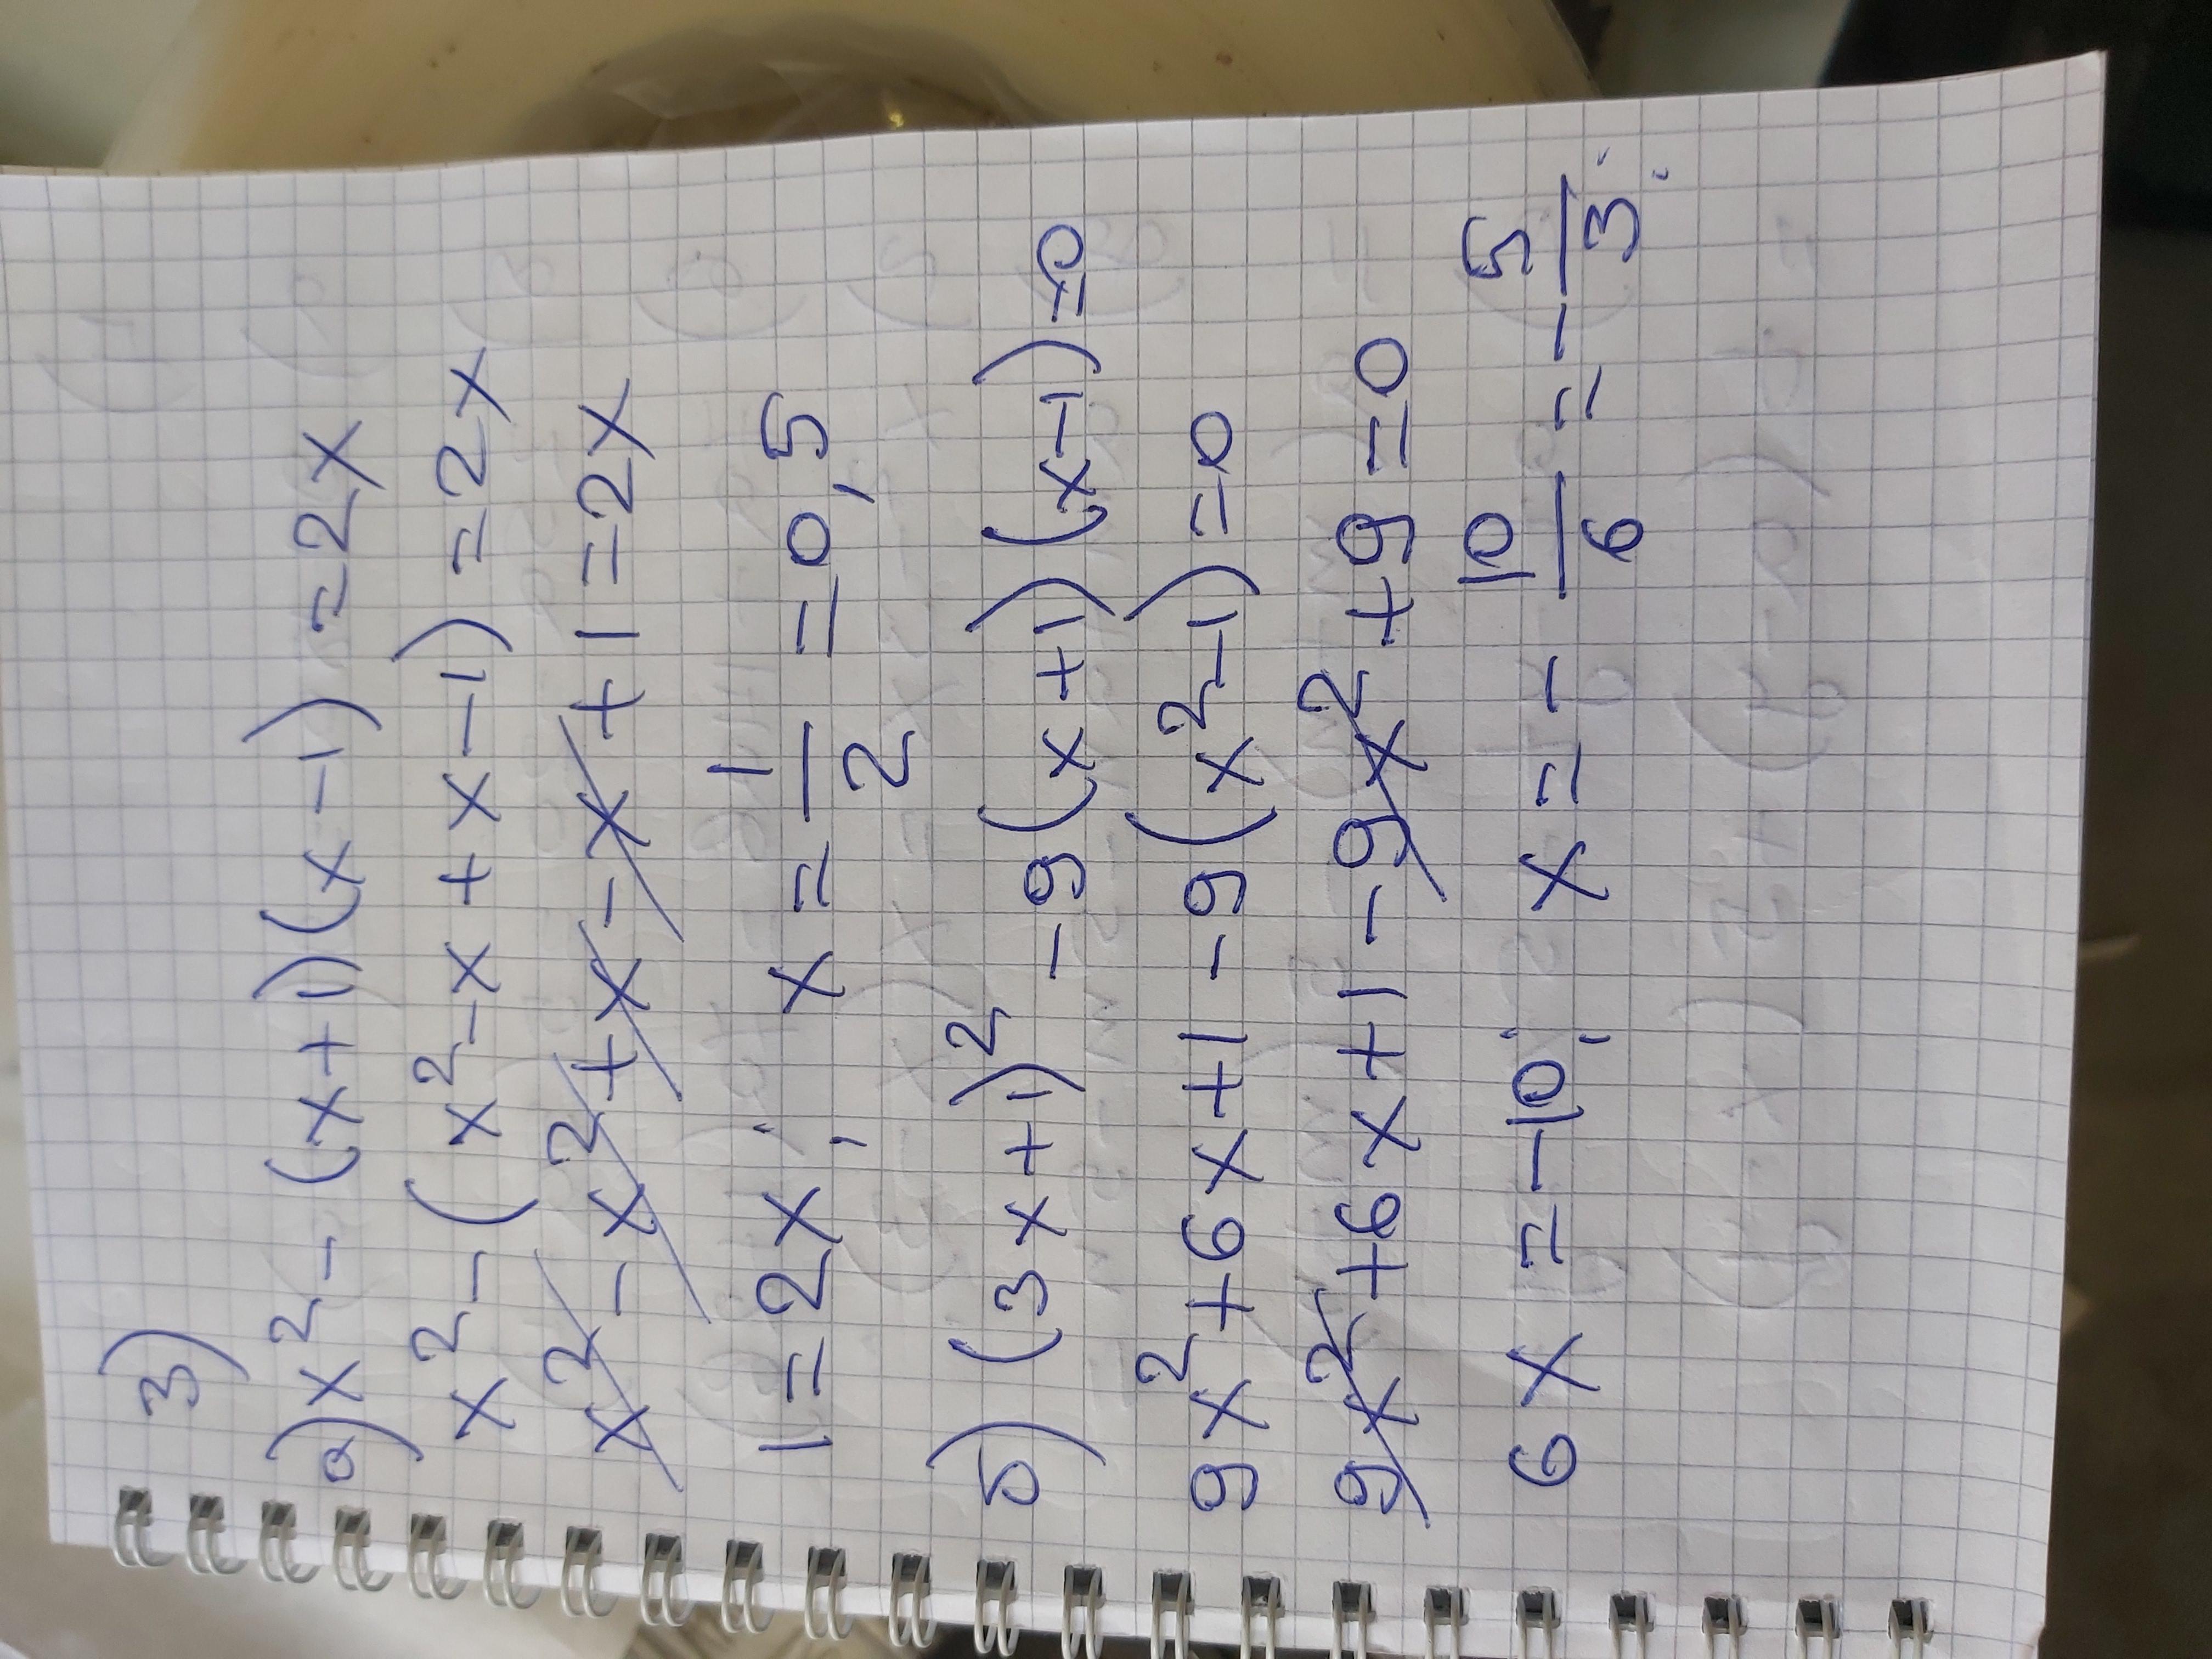 3)
a) x² - (x+1)(x-1) = 2x
x² - (x² - x + x - 1) = 2x
x² - x² + x - x + 1 = 2x
1 = 2x; x = 1/2 = 0,5
б) (3x+1)² - 9(x+1)(x-1)=0
9x² + 6x + 1 - 9(x² - 1) = 0
9x² + 6x + 1 - 9x² + 9 = 0
6x = -10; x = - 10/6 = - 5/3.